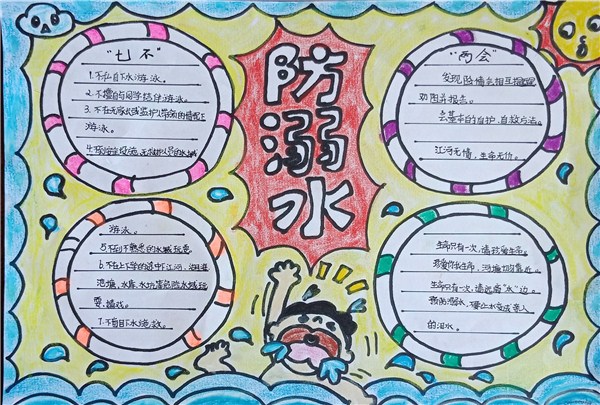 防溺水
"七不"
1.不私自下水游泳。
2.不擅自与同学结伴游泳。
3.不在无家长或监护人带领的情况下
游泳。
4.不
水域
游泳。
5.不到不熟悉的水域玩耍
6.不在上下学的途中下江河、湖
池塘、水库、水坑等危险水域玩
耍、嬉戏。
7.不盲目下水施救。
"两会"
发现险情会相互提醒
劝阻并报告。
会基本的自护、自救方法。
江河无情,生命无价。
生命只有一次,请珍爱生命。
珍爱你我生命,河塘切勿靠近。
生命只有一次,请远离"水"边。
预防溺水,
的泪水。